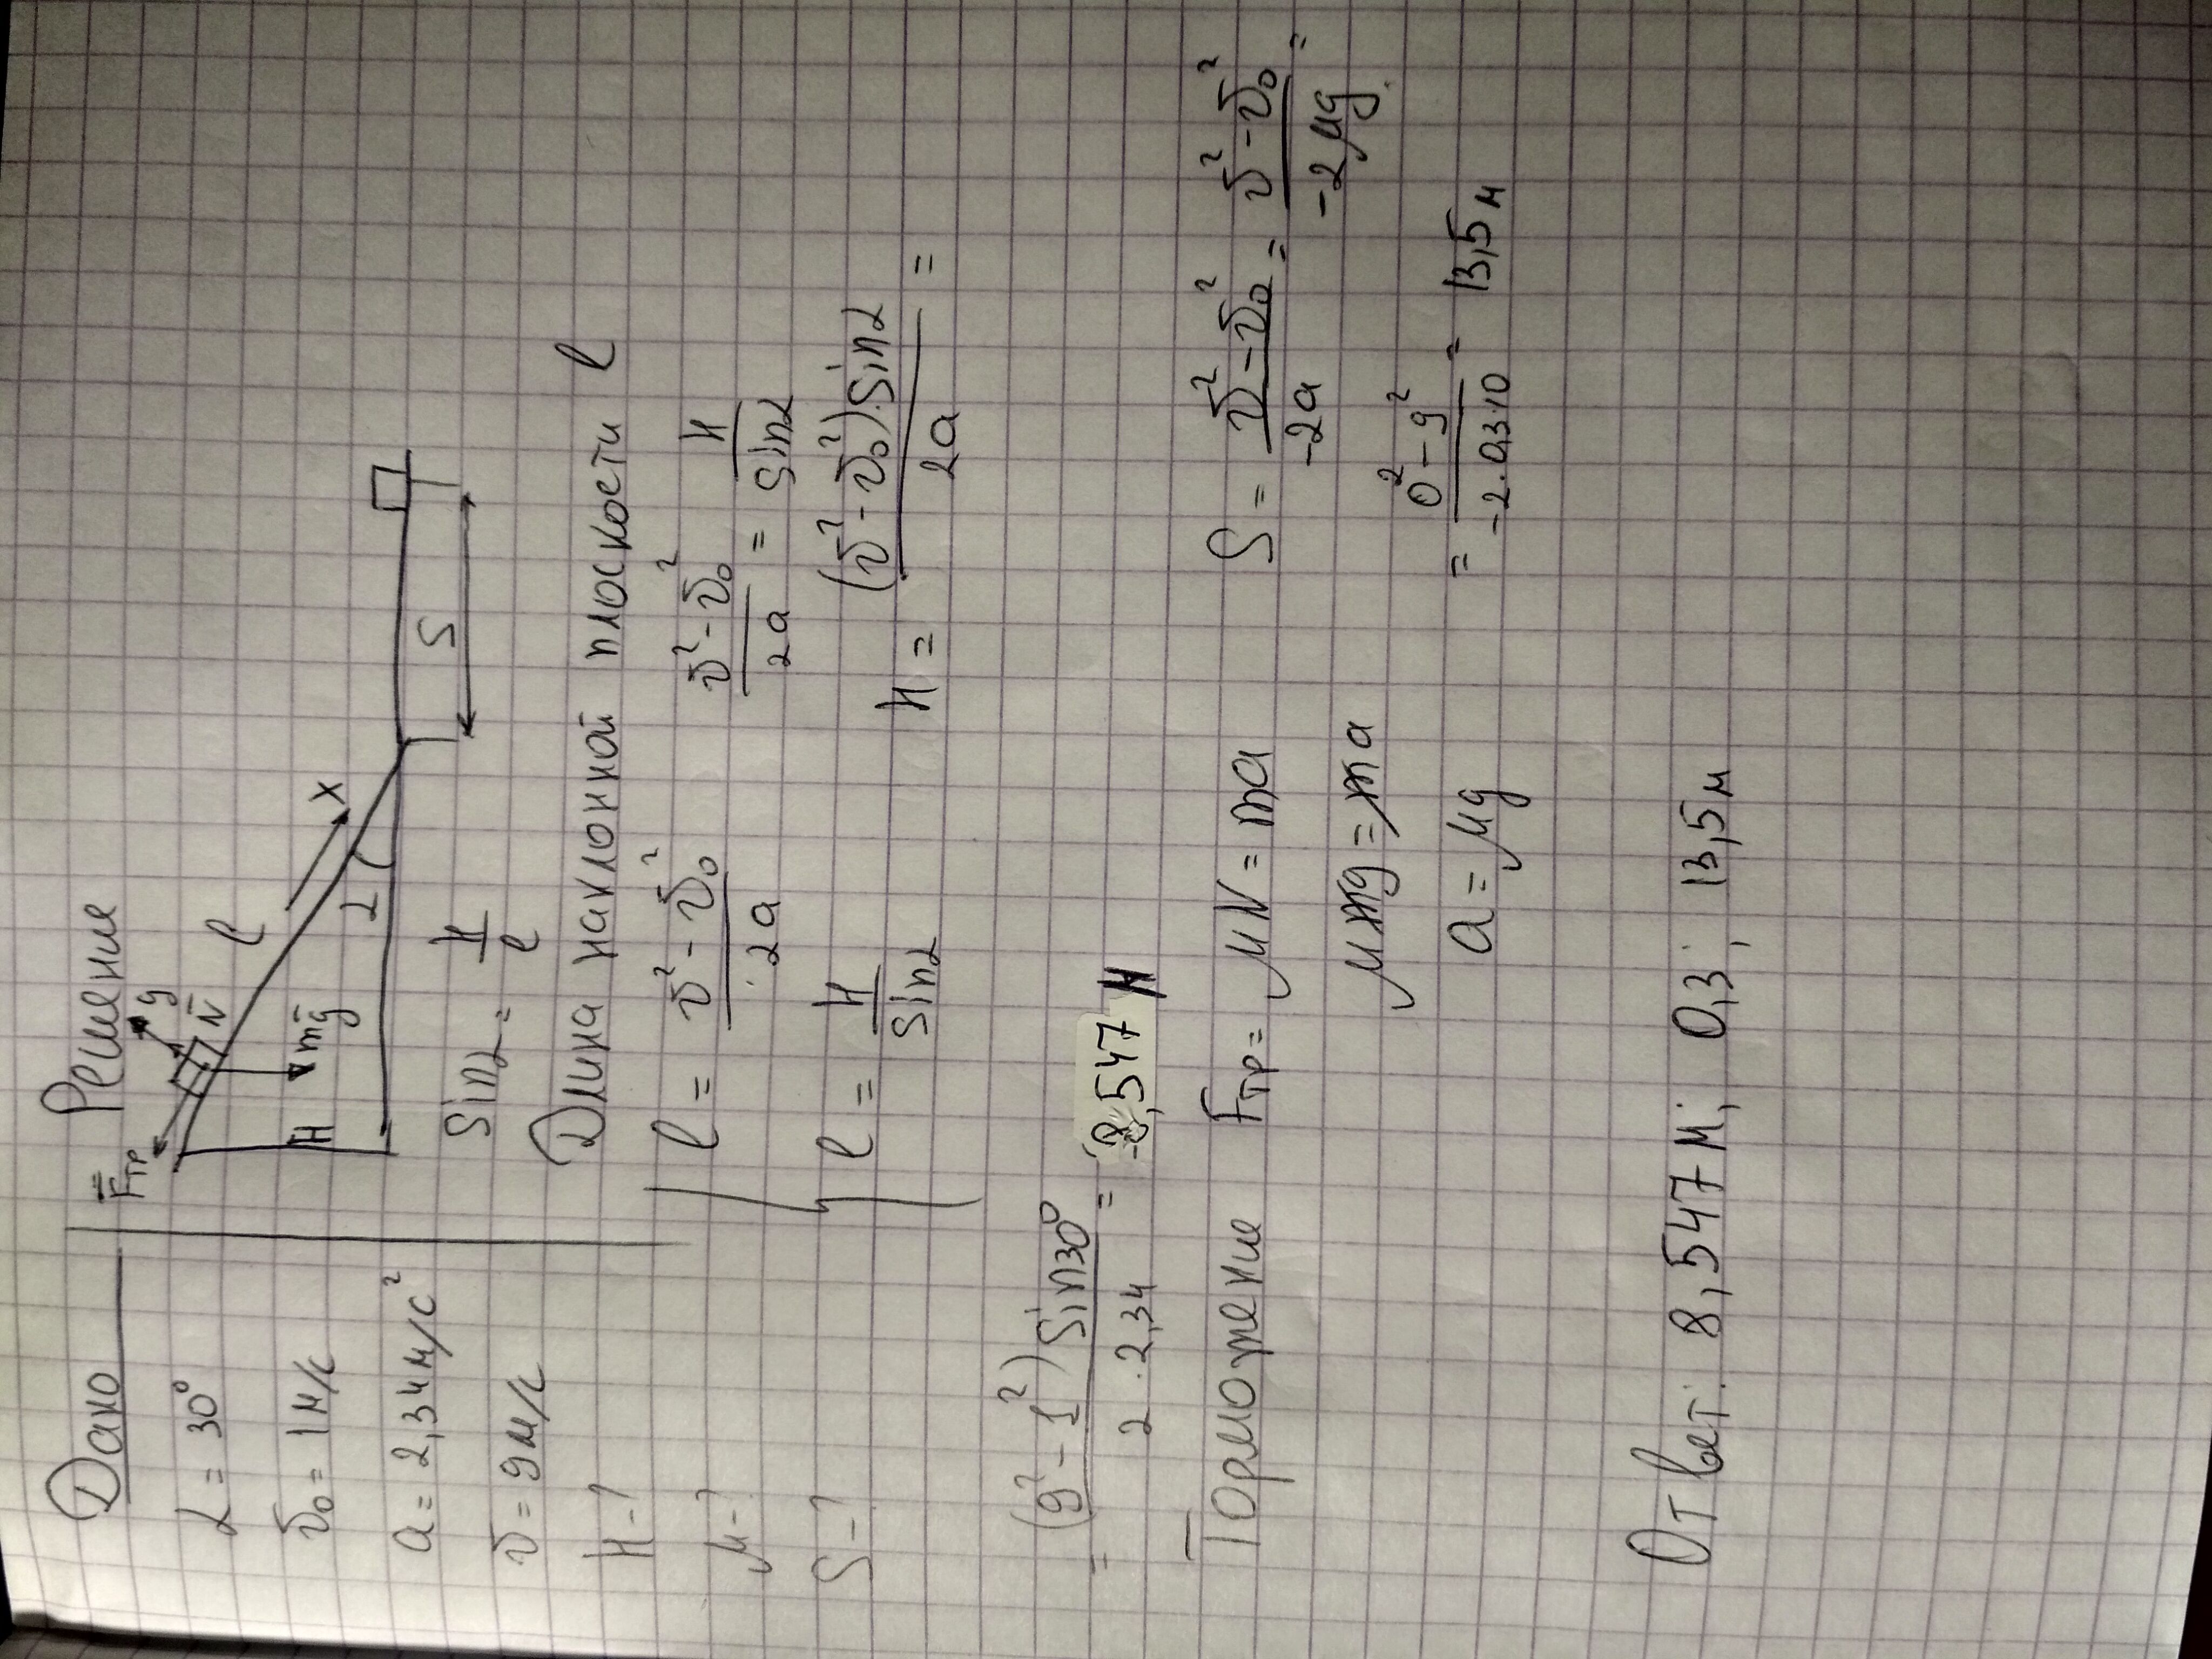 Дано
α = 30°
v̄₀ = 1 м/с
a = 2,34 м/с²
v̄ = 9 м/с
H - ?
μ - ?
S - ?
Решение
F̄тр
y
N̄
l
x
H
mḡ
α
S
Sinα = H/l
Длина наклонной плоскости l
l = (v̄² - v̄₀²)/2a
(v̄² - v̄₀²)/2a = H/Sinα
l = H/Sinα
H = (v̄² - v̄₀²)·Sinα/2a =
= (9² - 1²)Sin30°/2·2,34 = 8,547 м
Торможение
Fтр = μN = ma
μmg = ma
a = μg
S = (v̄² - v̄₀²)/-2a = (v̄² - v̄₀²)/-2μg =
= (0² - 9²)/-2·0,3·10 = 13,5 м
Ответ: 8,547 м; 0,3; 13,5 м